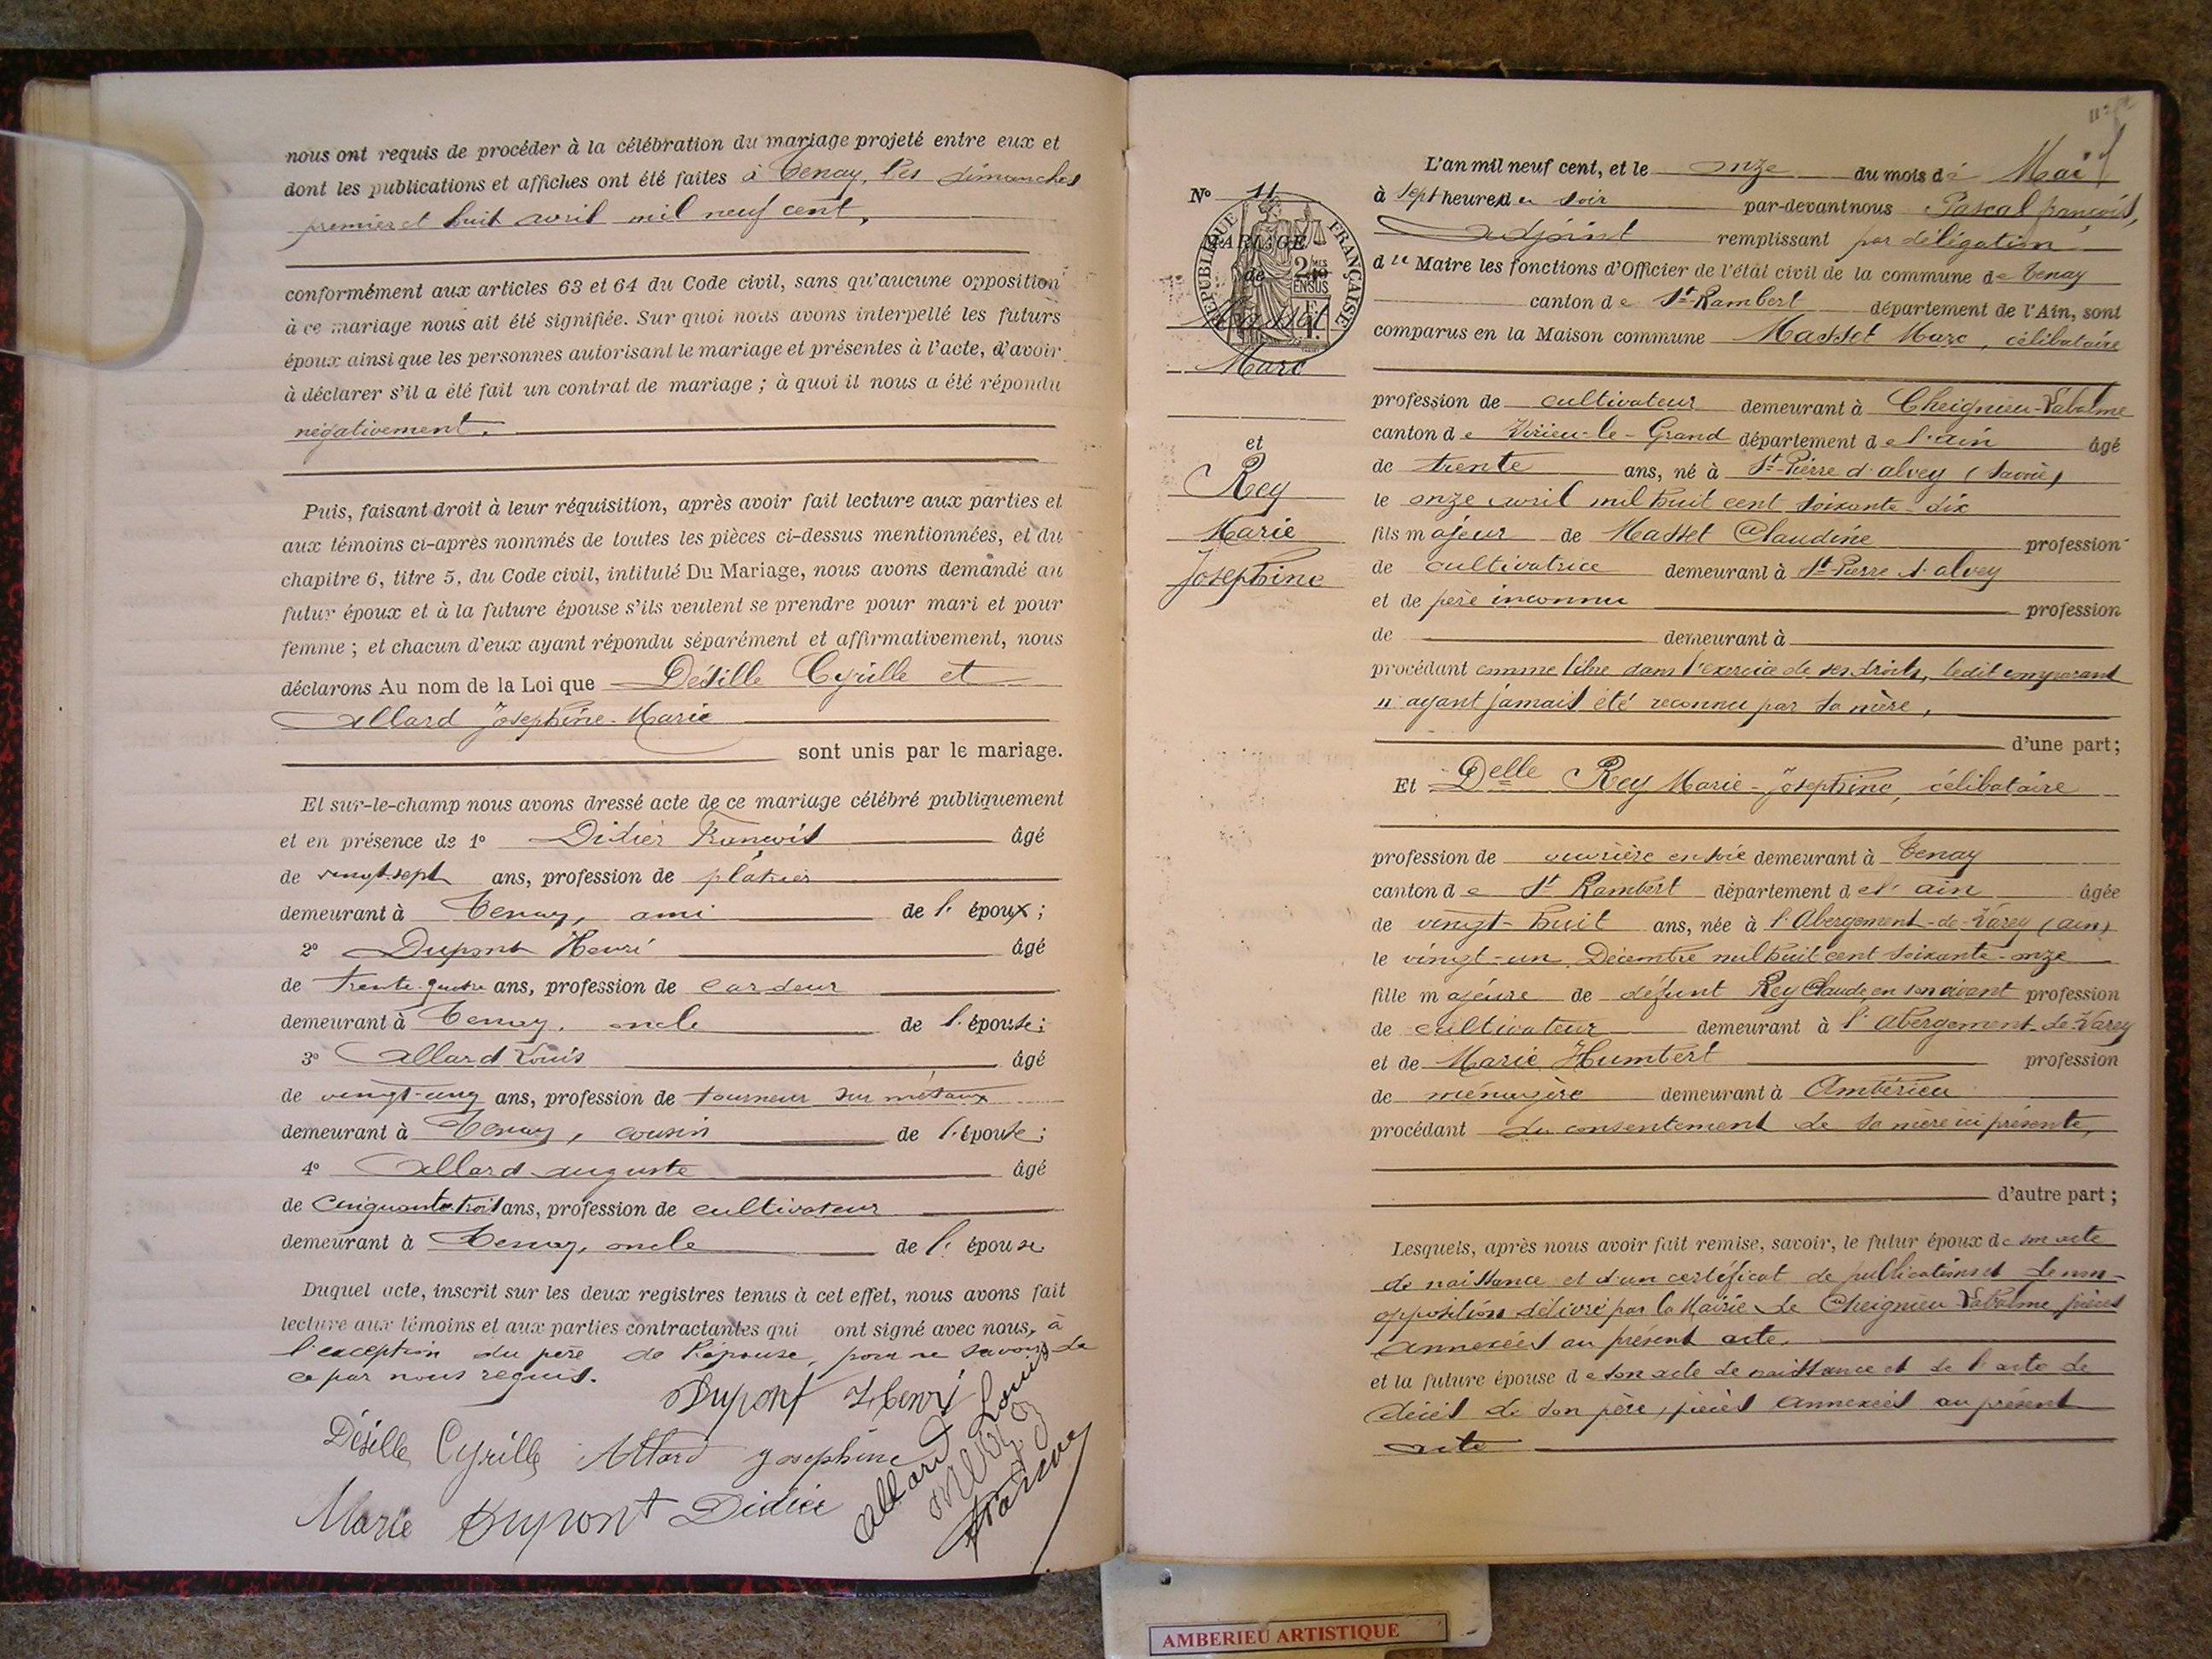 nous ont requis de procéder à la célébration du mariage projeté entre eux et
dont les publications et affiches ont été faites à Tenay, les dimanches
premier et huit avril mil neuf cent,
conformément aux articles 63 et 64 du Code civil, sans qu'aucune opposition
à ce mariage nous ait été signifiée. Sur quoi nous avons interpellé les futurs
époux ainsi que les personnes autorisant le mariage et présentes à l'acte, d'avoir
à déclarer s'il a été fait un contrat de mariage ; à quoi il nous a été répondu
négativement.
Puis, faisant droit à leur réquisition, après avoir fait lecture aux parties et
aux témoins ci-après nommés de toutes les pièces ci-dessus mentionnées, et du
chapitre 6, titre 5, du Code civil, intitulé Du Mariage, nous avons demandé au
futur époux et à la future épouse s'ils veulent se prendre pour mari et pour
femme ; et chacun d'eux ayant répondu séparément et affirmativement, nous
déclarons Au nom de la Loi que Désille Cyrille et
Allard Joséphine-Marie
sont unis par le mariage.
Et sur-le-champ nous avons dressé acte de ce mariage célébré publiquement
et en présence de 1° Didier François âgé
de vingt-sept ans, profession de plâtrier
demeurant à Tenay, ami de l' époux ;
2° Dupont Henri âgé
de trente-quatre ans, profession de cardeur
demeurant à Tenay, oncle de l'épouse ;
3° Allard Louis âgé
de vingt-cinq ans, profession de tourneur sur métaux
demeurant à Tenay, cousin de l'épouse ;
4° Allard Auguste âgé
de cinquante trois ans, profession de cultivateur
demeurant à Tenay, oncle de l' épouse
Duquel acte, inscrit sur les deux registres tenus à cet effet, nous avons fait
lecture aux témoins et aux parties contractantes qui ont signé avec nous, à
l'exception du père de l'épouse, pour ne savoir de
ce par nous requis.
Dupont Henri
Désille Cyrille Allard Joséphine
Allard Louis
Marie Dupont Didier
L'an mil neuf cent, et le onze du mois de Mai
N° 11
à sept heures du soir par-devant nous Pascal françois,
adjoint remplissant par délégation
du Maire les fonctions d'Officier de l'état civil de la commune de Tenay
canton de St-Rambert département de l'Ain, sont
comparus en la Maison commune Masset Marc, célibataire
RÉPUBLIQUE FRANÇAISE
MARIAGE
de
Masset
Marc
et
Rey
Marie
Joséphine
profession de cultivateur demeurant à Cheignieu-Labalme
canton de Virieu-le-Grand département de l'ain âgé
de trente ans, né à St-Pierre d'alvey (Savoie)
le onze avril mil huit cent soixante-dix
fils majeur de Masset Claudine profession
de cultivatrice demeurant à St-Pierre d'alvey
et de père inconnu profession
de demeurant à
procédant comme libre dans l'exercice de ses droits, ledit comparant
n'ayant jamais été reconnu par sa mère,
d'une part ;
Et Delle Rey Marie-Joséphine, célibataire
profession de ouvrière en soie demeurant à Tenay
canton de St Rambert département de l'ain âgée
de vingt-huit ans, née à l'Abergement-de-Varey (ain)
le vingt-un Décembre mil huit cent soixante-onze
fille majeure de défunt Rey Claude, en son vivant profession
de cultivateur demeurant à l'Abergement-de-Varey
et de Marie Humbert profession
de ménagère demeurant à Ambérieu
procédant du consentement de sa mère ici présente,
d'autre part ;
Lesquels, après nous avoir fait remise, savoir, le futur époux de son acte
de naissance et d'un certificat de publications et de non-
opposition délivré par la Mairie de Cheignieu-Labalme, pièces
annexées au présent acte.
et la future épouse de son acte de naissance et de l'acte de
décès de son père, pièces annexées au présent
acte
AMBERIEU ARTISTIQUE